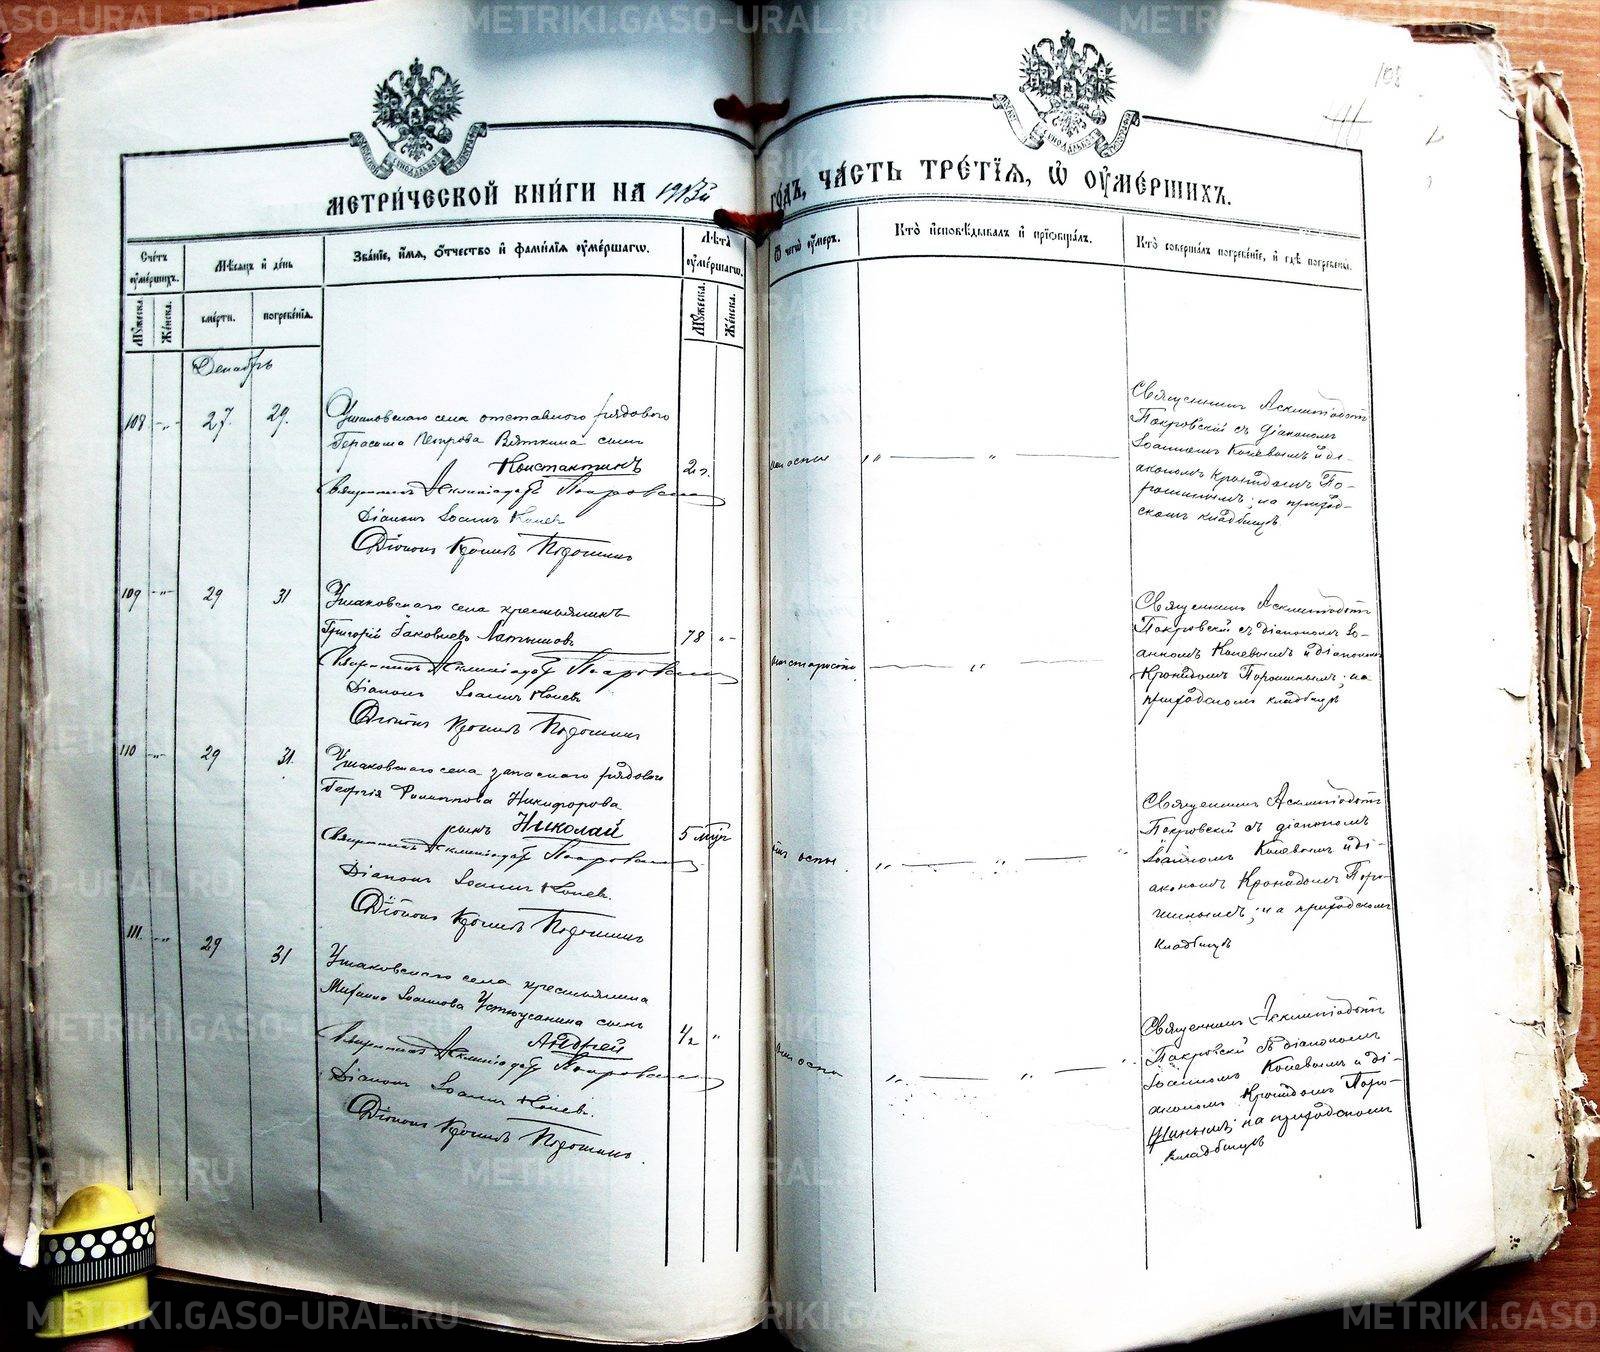 METRIKI.GASO-URAL.RU
МЕТРИ́ЧЕСКОЙ КНИ́ГИ НА 1913й
ГО́ДЪ, ЧА́СТЬ ТРЕ́ТІЯ, Ѡ҆ ОУ҆МЕ́РШИХЪ.
Сче́тъ оу҆ме́ршихъ.
Мѣ́сяцъ и҆ де́нь
Зва́нїе, и҆́мя, ѻ҆́тчество и҆ фами́лїя оу҆ме́ршагѡ.
Лѣ́та оу҆ме́ршагѡ.
Ѿ чегѡ̀ оу҆́меръ.
Кто̀ и҆сповѣ́дывалъ и҆ прїѡбща́лъ.
Кто̀ соверша́лъ погребе́нїе, и҆ гдѣ̀ погребены̀.
Му́жеска.
Же́нска.
сме́рти.
погребе́нїя.
Му́жеска.
Же́нска.
Декабрь
108 -„- 27. 29.
Ушаковскаго села отставного рядового
Герасима Петрова Вяткина сынъ
Константинъ 2 г.
Священникъ Асклипіодотъ Покровскій
Діаконъ Іоаннъ Коневъ
Діаконъ Кронидъ Порошинъ
отъ оспы
Священникъ Асклипіодотъ
Покровскій съ діакономъ
Іоанномъ Коневымъ и ді-
акономъ Кронидомъ По-
рошинымъ; на приход-
скомъ кладбищѣ
109 -„- 29 31
Ушаковскаго села крестьянинъ
Григорій Іаковлевъ Латышовъ 78 „-
Священникъ Асклипіодотъ Покровскій
Діаконъ Іоаннъ Коневъ
Діаконъ Кронидъ Порошинъ
отъ старости
Священникъ Асклипіодотъ
Покровскій съ діакономъ Іо-
анномъ Коневымъ и діаконом
Кронидомъ Порошинымъ; на
приходскомъ кладбищѣ
110 -„- 29 31.
Ушаковскаго села запасного рядового
Георгія Филиппова Никифорова
сынъ Николай 5
Священникъ Асклипіодотъ Покровскій
Діаконъ Іоаннъ Коневъ.
Діаконъ Кронидъ Порошинъ
отъ оспы
Священникъ Асклипіодотъ
Покровскій съ діакономъ
Іоанномъ Коневымъ и ді-
акономъ Кронидомъ Поро-
шинымъ; на приходскомъ
кладбищѣ
111. -„- 29 31
Ушаковскаго села крестьянина
Іоаннова Устюжанина сынъ
Андрей 1/2 „
Священникъ Асклипіодотъ Покровскій
Діаконъ Іоаннъ Коневъ.
Діаконъ Кронидъ Порошинъ.
отъ оспы
Священникъ Асклипіодотъ
Покровскій съ діакономъ
Іоанномъ Коневымъ и ді-
акономъ Кронидомъ Поро-
шинымъ; на приходскомъ
кладбищѣ
METRIKI.GASO-URAL.RU